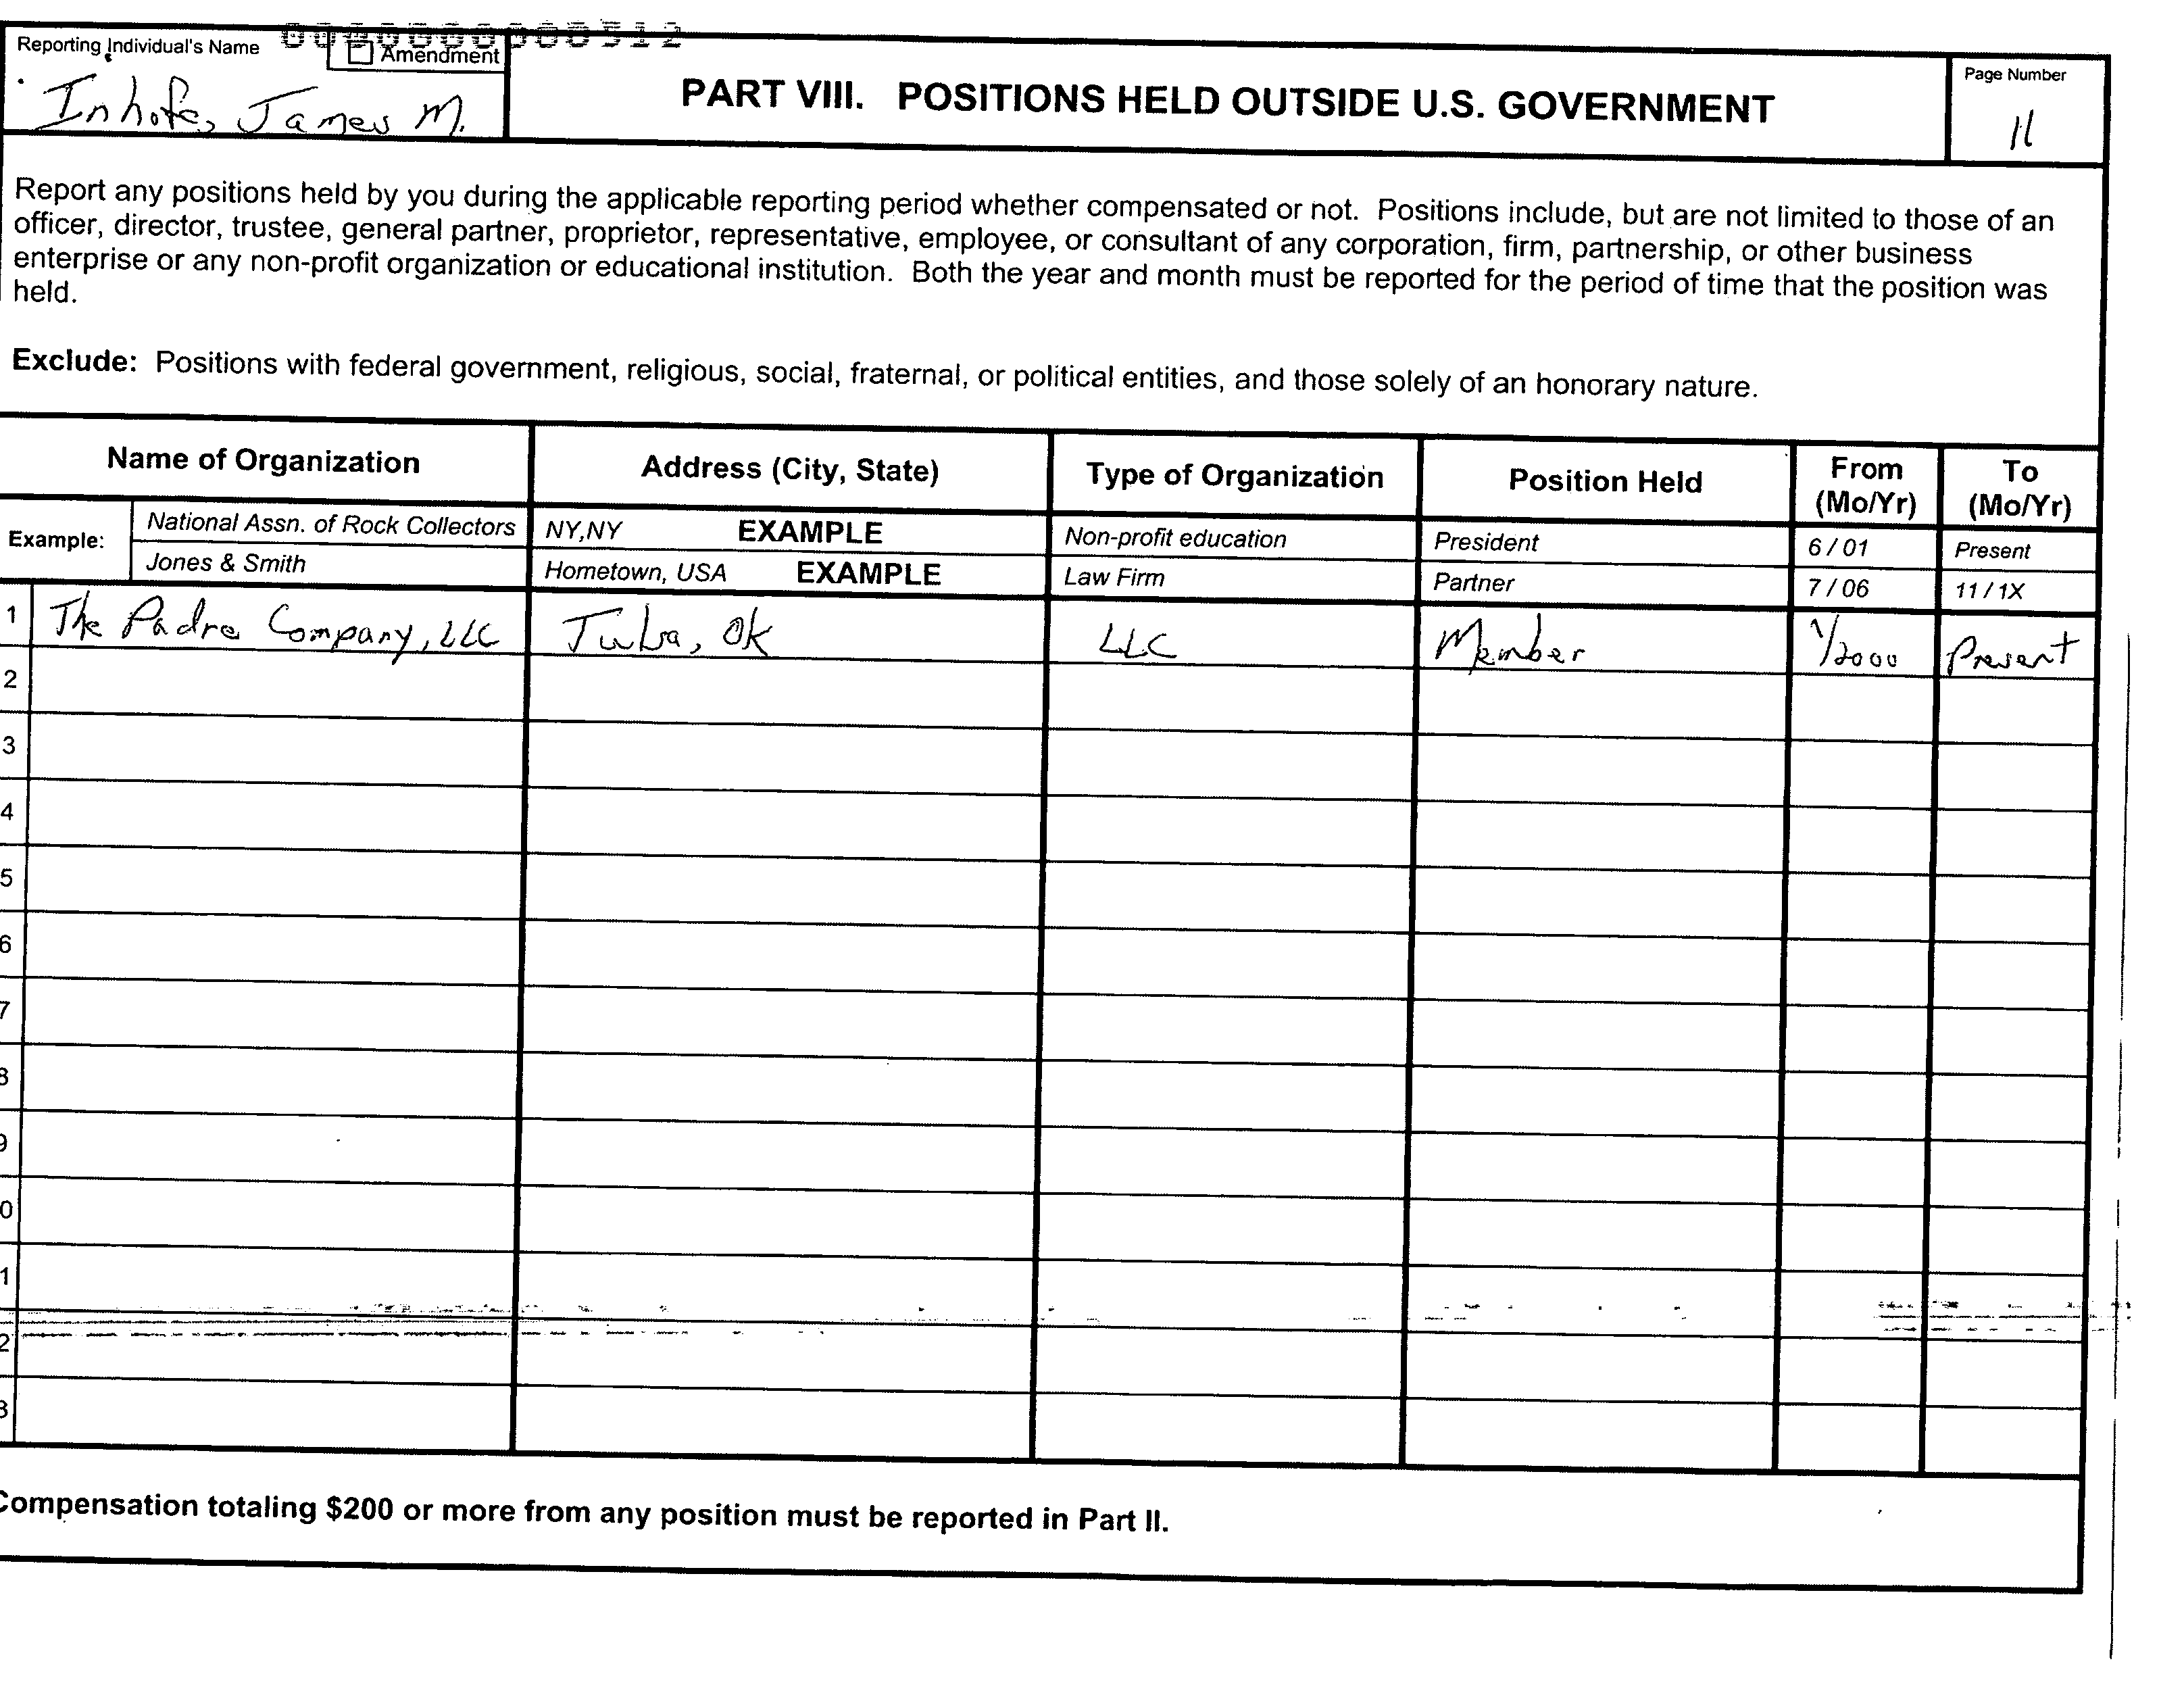 000000000512
Reporting Individual's Name
Amendment
Inhofe, James M.
PART VIII. POSITIONS HELD OUTSIDE U.S. GOVERNMENT
Page Number
11
Report any positions held by you during the applicable reporting period whether compensated or not. Positions include, but are not limited to those of an
officer, director, trustee, general partner, proprietor, representative, employee, or consultant of any corporation, firm, partnership, or other business
enterprise or any non-profit organization or educational institution. Both the year and month must be reported for the period of time that the position was
held.
Exclude: Positions with federal government, religious, social, fraternal, or political entities, and those solely of an honorary nature.
Name of Organization Address (City, State) Type of Organization Position Held From (Mo/Yr) To (Mo/Yr)
Example: National Assn. of Rock Collectors NY,NY EXAMPLE Non-profit education President 6 / 01 Present
Jones & Smith Hometown, USA EXAMPLE Law Firm Partner 7 / 06 11 / 1X
1 The Padre Company, LLC Tulsa, OK LLC Member 1/2000 Present
2
3
4
5
6
7
8
9
0
1
2
3
Compensation totaling $200 or more from any position must be reported in Part II.